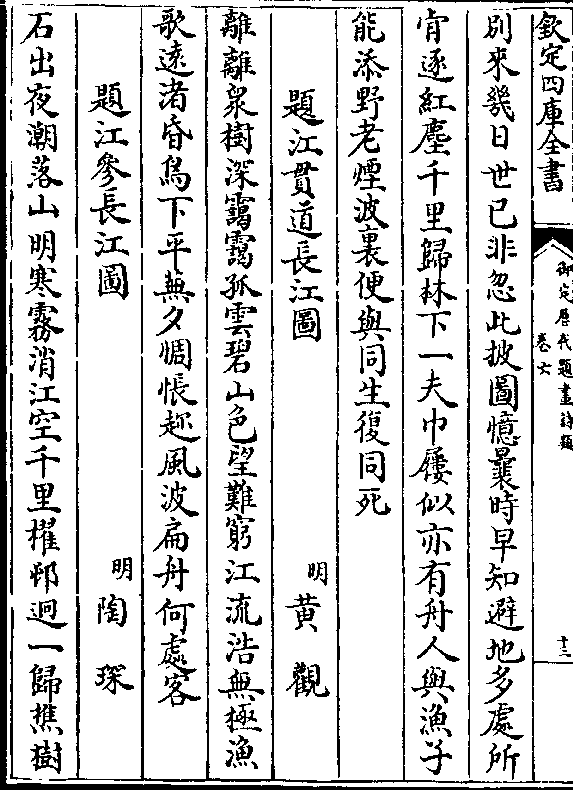 欽定四庫全書
御定歷代題畫詩類
卷六
十三
別來幾日世已非忽此披圖憶曩時早知避地多處所
肯逐紅塵千里歸林下一夫巾屨似亦有舟人與漁子
能添野老煙波裏便與同生復同死
題江貫道長江圖
明 黄觀
離離泉樹深靄靄孤雲碧山色望難窮江流浩無極漁
歌遠渚昏鳥下平蕪夕惆悵趂風波扁舟何處客
題江參長江圖
明 陶琛
石出夜潮落山明寒霧消江空千里櫂邨迥一歸樵樹